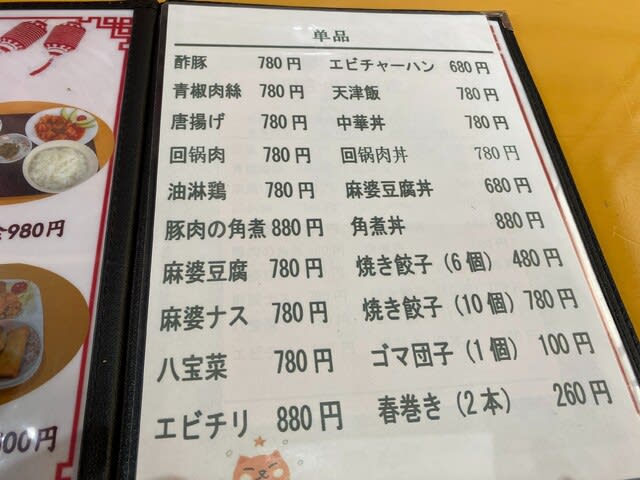 単品
酢豚 780円 エビチャーハン 680円
青椒肉絲 780円 天津飯 780円
唐揚げ 780円 中華丼 780円
回锅肉 780円 回锅肉丼 780円
油淋鶏 780円 麻婆豆腐丼 680円
豚肉の角煮 880円 角煮丼 880円
麻婆豆腐 780円 焼き餃子（6個）480円
麻婆ナス 780円 焼き餃子（10個）780円
八宝菜 780円 ゴマ団子（1個）100円
エビチリ 880円 春巻き（2本）260円
980円
00円